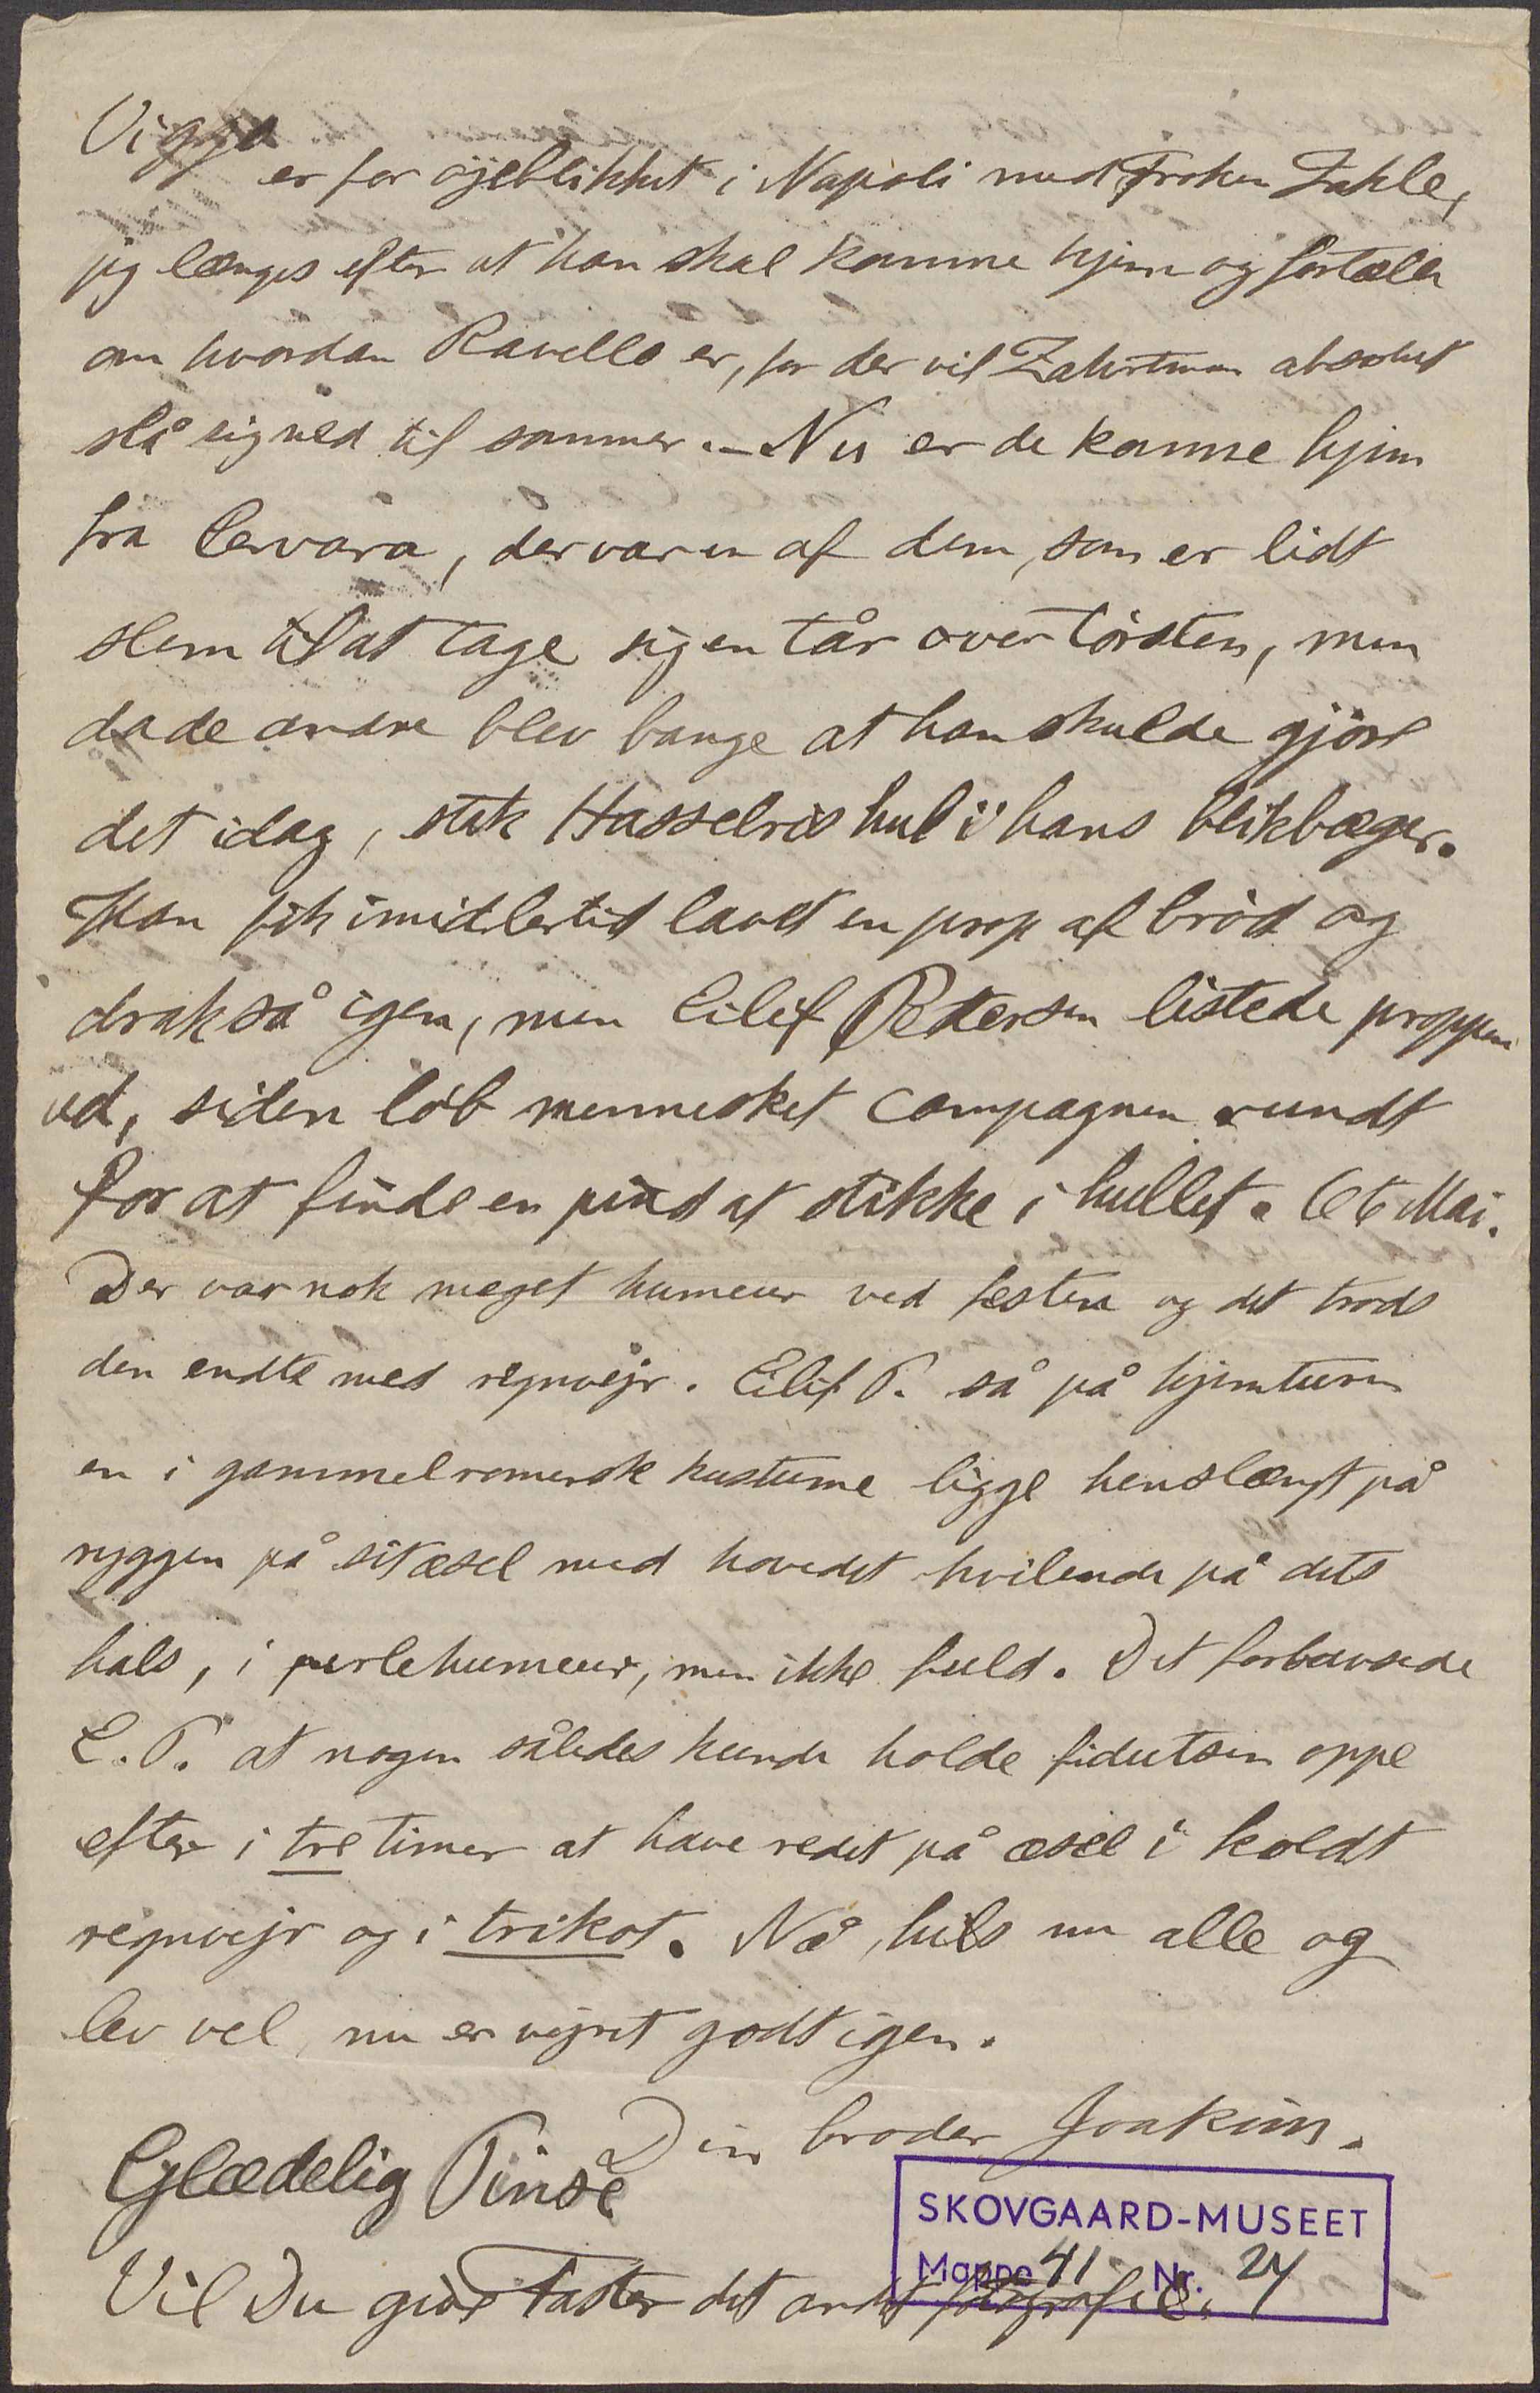 Viggo
er for øjeblikket i Napoli med Frøken Zahle,
jeg længes efter at han skal komme hjem og fortælle
om hvordan Ravello er, for der vil Zahrtman absolut
slå sig ned til sommer. – Nu er de komne hjem
fra Cervara, der var en af dem, som er lidt
slem til at tage sig en tår over tørsten, men
da de andre blev bange at han skulde gjøre
det idag, stak Hasselriis hul i hans blikbæger.
Han fik imidlertid lavet en prop af brød og
drak så igen, men Eilif Petersen listede proppen
ud, siden løb mennesket campagnen rundt
for at finde en pind at stikke i hullet. 6te Mai.
Der var nok meget humeur ved festen og det trods
den endte med regnvejr. Eilif P. så på hjemturen
en i gammelromersk kustume ligge henslængt på
ryggen på sit æsel med hovedet hvilende på dets
hals, i perlehumeur, men ikke fuld. Det forbavsede
E. P. at nogen således kunde holde fidutsen oppe
efter i tre timer at have redet på æsel i koldt
regnvejr og i trikot. Nå, hils nu alle og
lev vel, nu er vejret godt igen.
Din broder Joakim.
Glædelig Pinse
SKOVGAARD-MUSEET
Mappe 41 Nr. 24
Vil Du give Faster det andet fotografie.